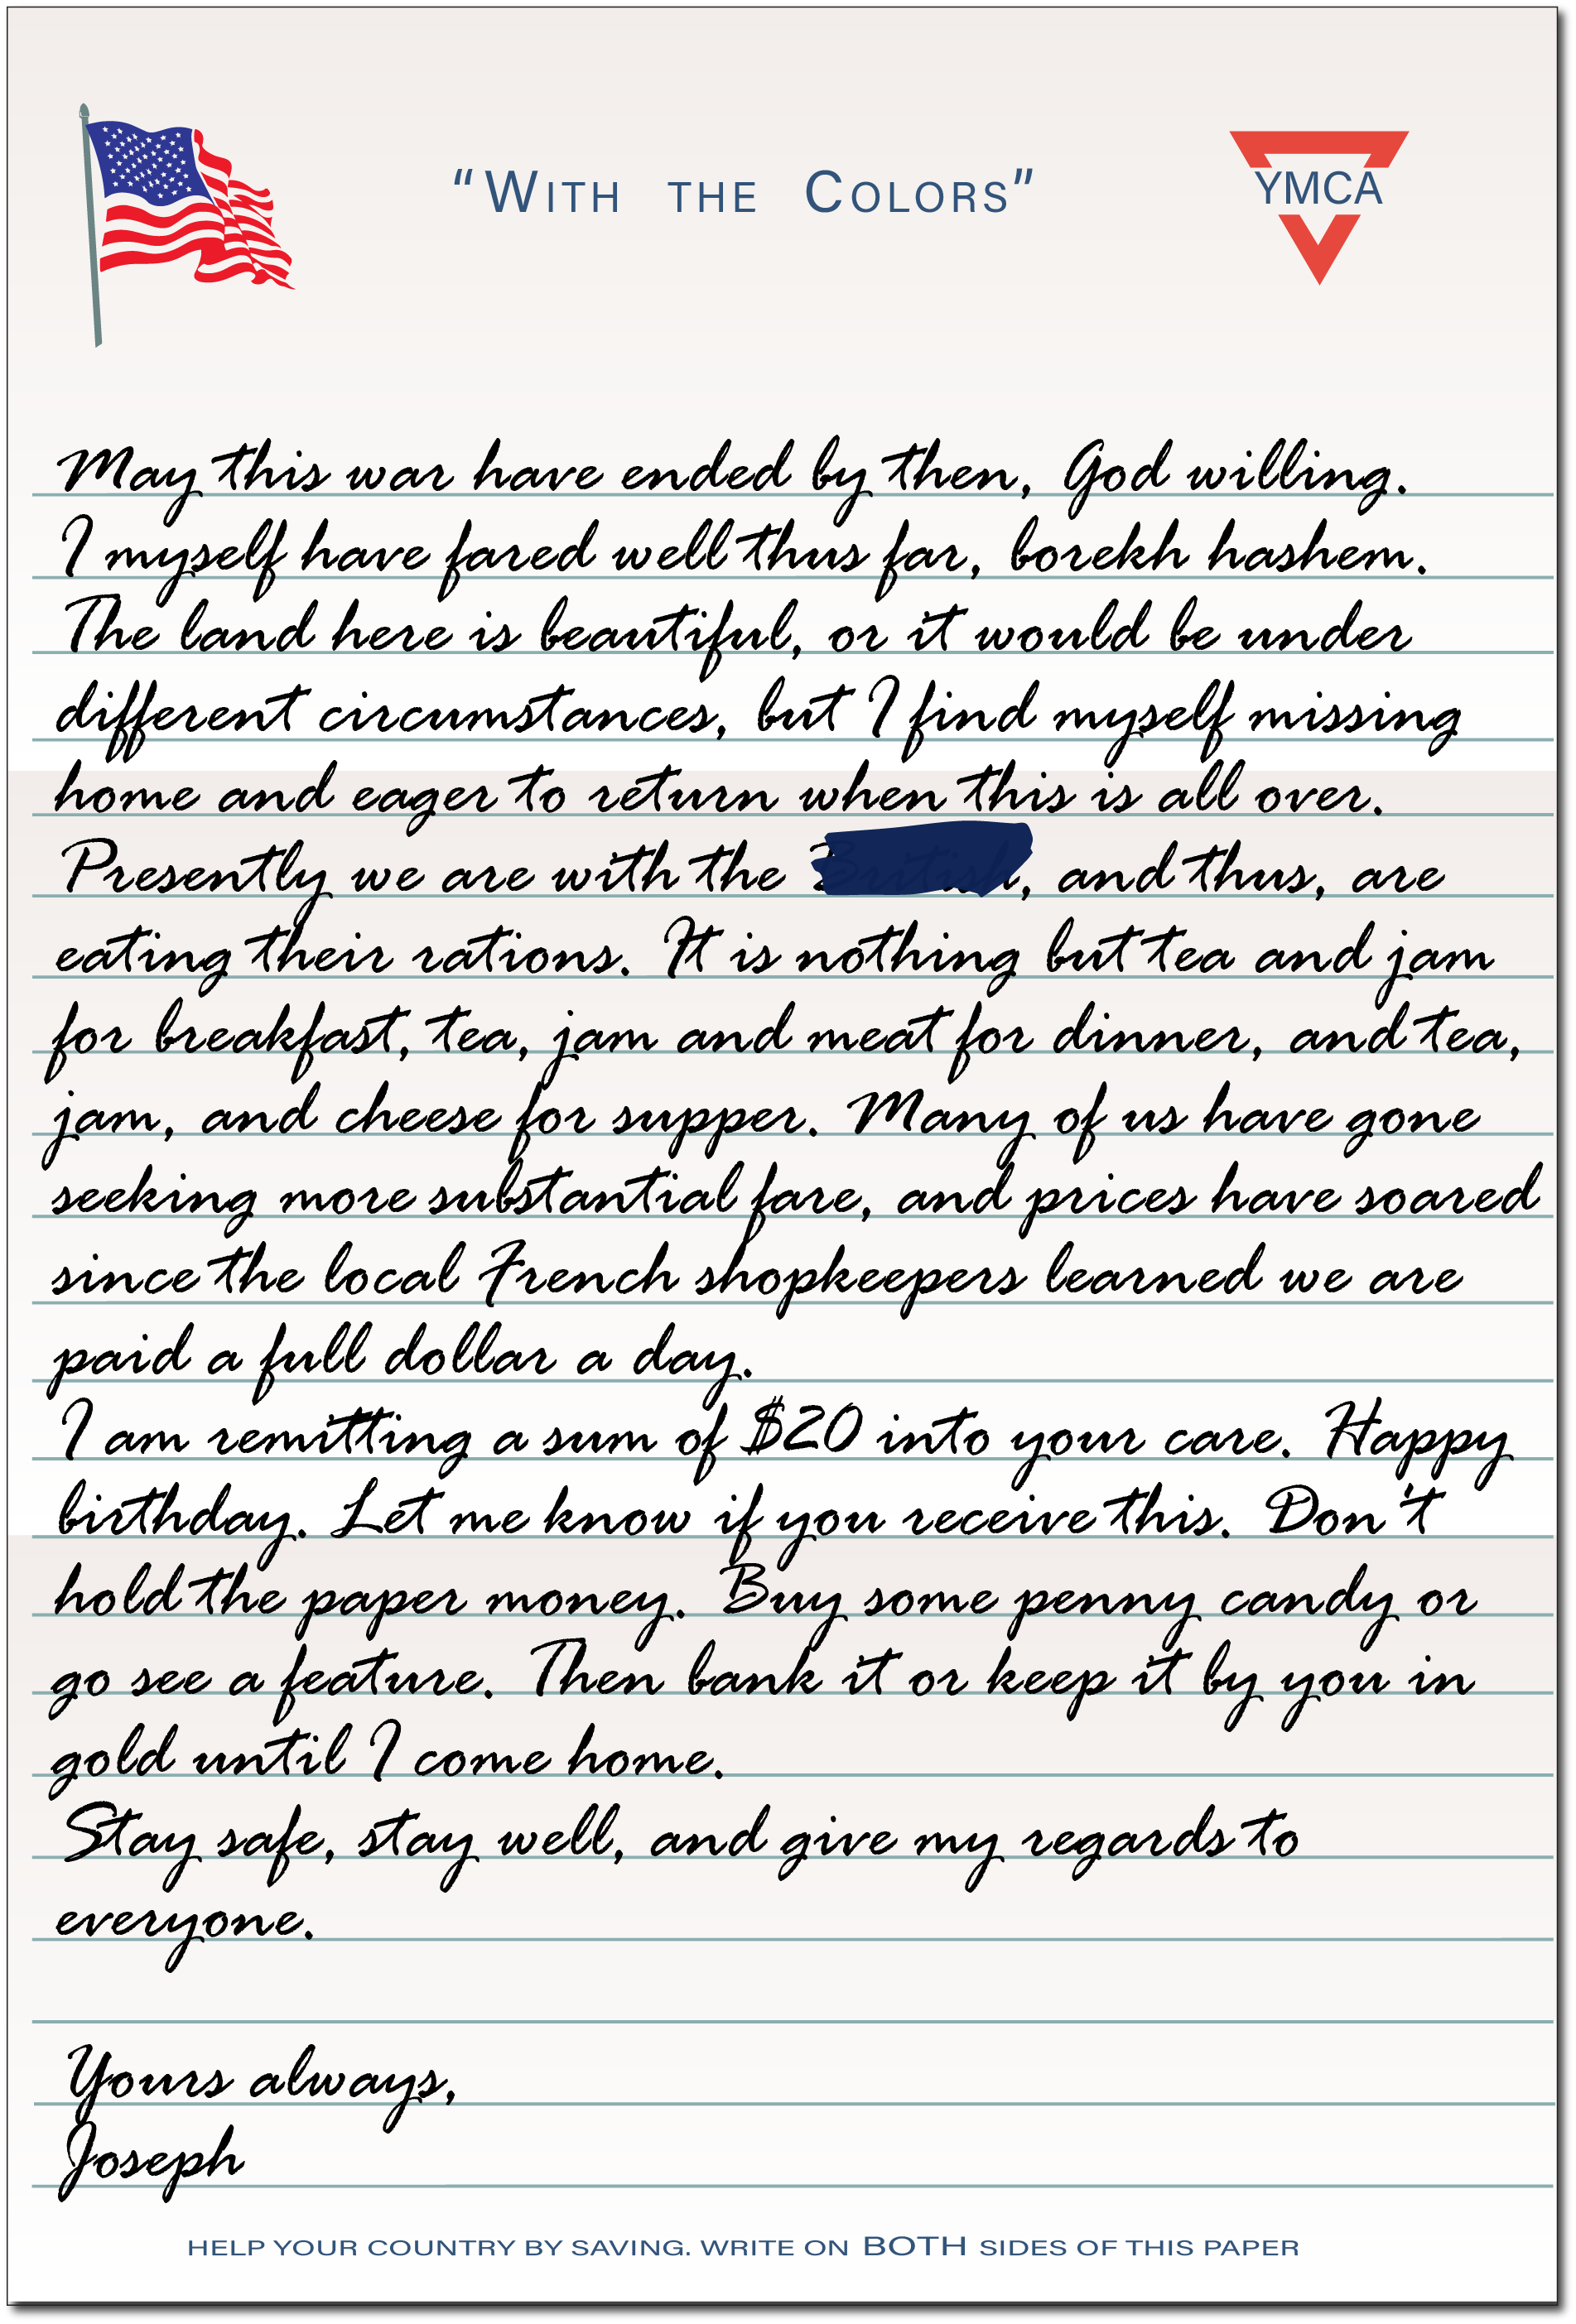 “With the Colors”
YMCA
May this war have ended by then, God willing.
I myself have fared well thus far, borekh hashem.
The land here is beautiful, or it would be under
different circumstances, but I find myself missing
home and eager to return when this is all over.
Presently we are with the British, and thus, are
eating their rations. It is nothing but tea and jam
for breakfast, tea, jam and meat for dinner, and tea,
jam, and cheese for supper. Many of us have gone
seeking more substantial fare, and prices have soared
since the local French shopkeepers learned we are
paid a full dollar a day.
I am remitting a sum of $20 into your care. Happy
birthday. Let me know if you receive this. Don't
hold the paper money. Buy some penny candy or
go see a feature. Then bank it or keep it by you in
gold until I come home.
Stay safe, stay well, and give my regards to
everyone.
Yours always,
Joseph
HELP YOUR COUNTRY BY SAVING. WRITE ON BOTH SIDES OF THIS PAPER